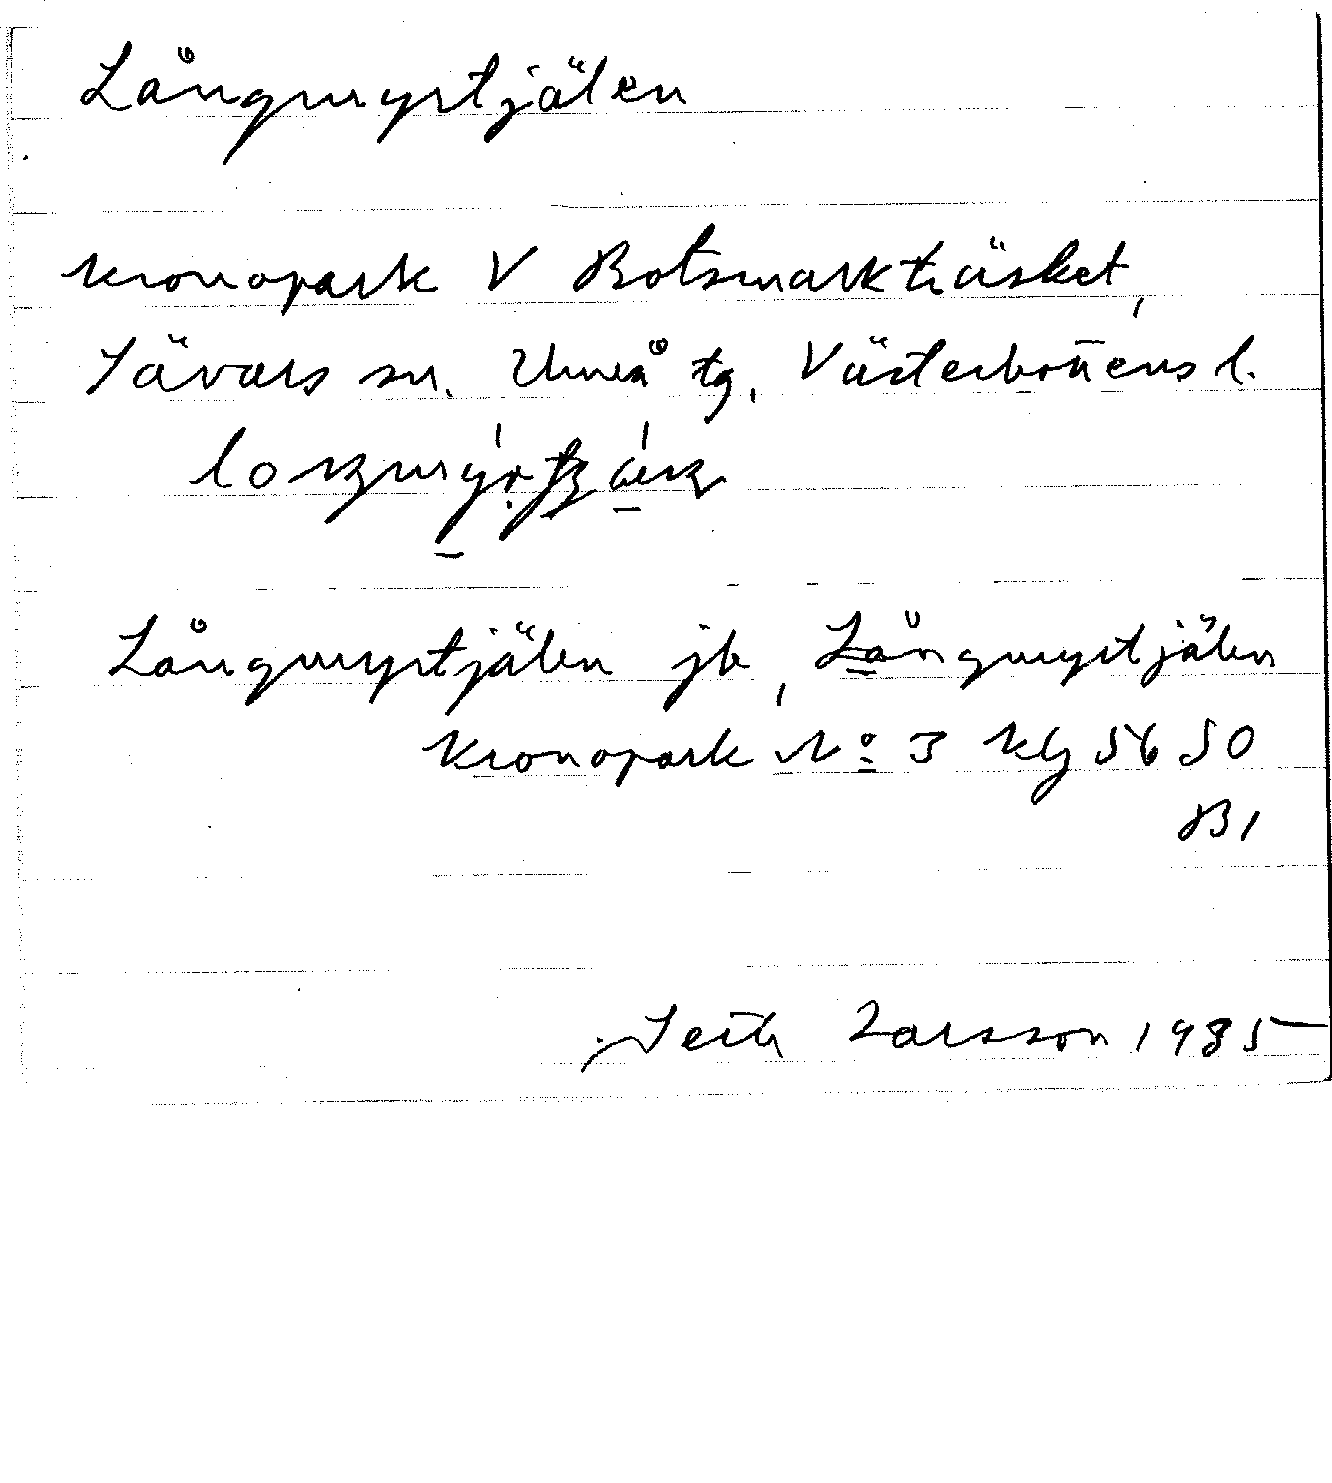 Långmyrtjälen
Kronopark V Botsmarkträsket,
Sävars sn. Umeå tg. Västerbottens l.
Långmyrtjälen jb, Långmyrtjälen
Kronopark No 3 Kbg 56 50
B1
Seth Larsson 1935